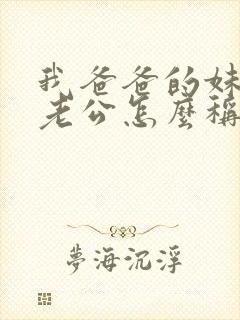 我爸爸的妹
老公怎麼稱
夢海沉浮